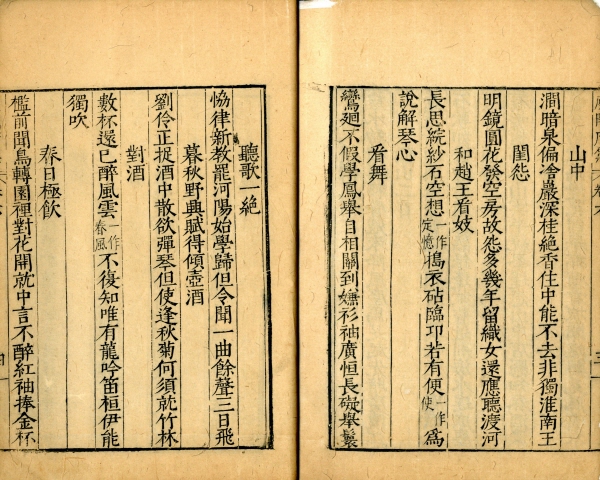 山中
澗暗泉偏冷巖深桂絶香住中能不去非獨淮南王
閨怨
明鏡圓花發空房故怨多幾年留織女還應聽渡河
和趙王看妓
長思綄紗石空想一作定憶搗衣砧臨卭若有便一作使爲
說解琴心
看舞
鸞廻不假學鳳舉自相關到嫌衫袖廣恒長礙舉鬟
聽歌一絶
恊律新教罷河陽始學歸但令聞一曲餘聲三日飛
暮秋野興賦得傾壺酒
劉伶正捉酒中散欲彈琴但使逢秋菊何須就竹林
對酒
數杯還已醉風雲一作春風不復知唯有龍吟笛桓伊能
獨吹
春日極飲
檻前聞鳥轉園裡對花開就中言不醉紅袖捧金杯